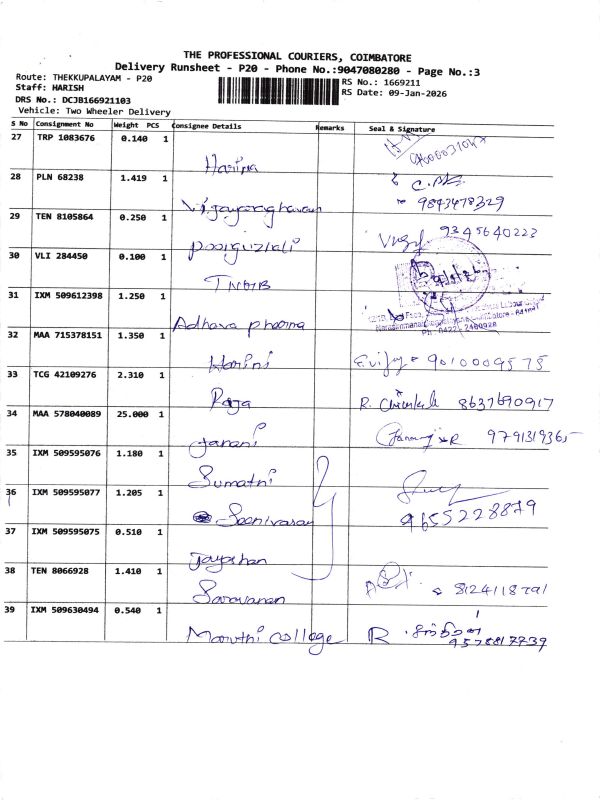 THE PROFESSIONAL COURIERS, COIMBATORE
Delivery Runsheet - P20 - Phone No.:9047080280 - Page No.:3
Route: THEKKUPALAYAM - P20
RS No.: 1669211
Staff: HARISH
RS Date: 09-Jan-2026
DRS No.: DCJB166921103
Vehicle: Two Wheeler Delivery
S No Consignment No Weight PCS Consignee Details Remarks Seal & Signature
27 TRP 1083676 0.140 1
28 PLN 68238 1.419 1 Vijayaraghavan 9843478329
29 TEN 8105864 0.250 1 9345640223
30 VLI 284450 0.100 1 TNGB
31 IXM 509612398 1.250 1 Adhava pharma
32 MAA 715378151 1.350 1 Harini 9010009575
33 TCG 42109276 2.310 1 Raja R. 8637690917
34 MAA 578040089 25.000 1 Janani 9791319365
35 IXM 509595076 1.180 1 Sumathi
36 IXM 509595077 1.205 1 Seenivasan 9655228879
37 IXM 509595075 0.510 1
38 TEN 8066928 1.410 1 Saravanan 8124118791
39 IXM 509630494 0.540 1 Maruthi college R